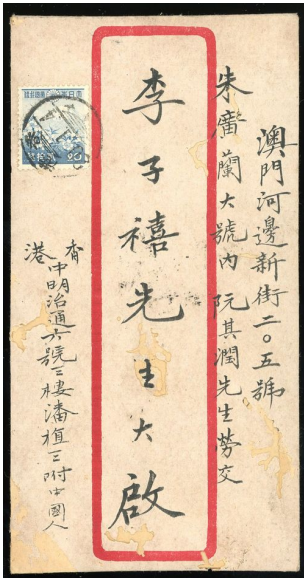 澳門河邊新街二〇五號
朱廣蘭大號內阮其潤先生勞交
李子禧先生大啟
香港中明治通六號三樓潘植三附中國人